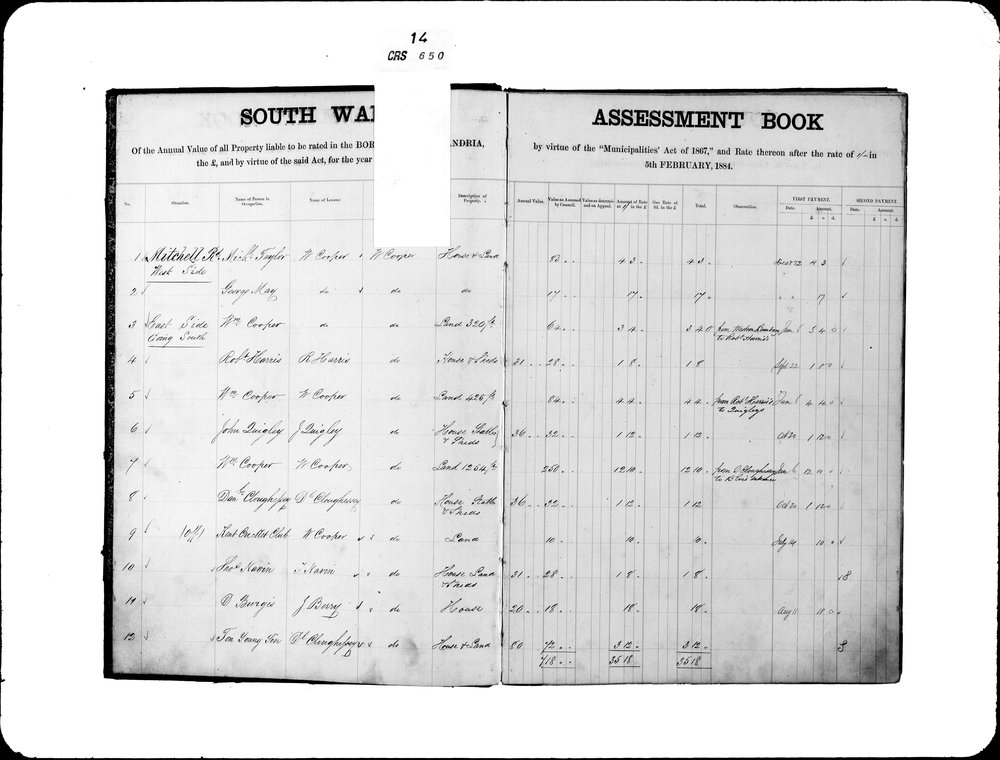 14
CRS 650
SOUTH WA
Of the Annual Value of all Property liable to be rated in the BOR NDRIA,
the £, and by virtue of the said Act, for the year
ASSESSMENT BOOK
by virtue of the "Municipalities' Act of 1867," and Rate thereon after the rate of 1/- in
5th FEBRUARY, 1884.
No. Situation. Name of Person in Occupation. Name of Lessees Description of Property. Annual Value. Value as Assessed by Council. Value as determined on Appeal. Amount of Rate at 1/ in the £ Gas Rate at 3d. in the £ Total. Observation. FIRST PAYMENT. Date. Amount. £ s. d. SECOND PAYMENT. Date. Amount. £ s. d.
1 Mitchell Rd Michl Taylor W Cooper W Cooper House & Land 83 4 3 4 3 Dec 12 4 3
West Side
2 George May do do do 17 17 17 17
3 East Side Wm Cooper do do Land 320 ft 64 3 4 3 4 0 from Jan 3 4 0
Going South to Robt Harris's
4 Robt Harris R Harris do House & Sheds 31 28 1 8 1 8 Sept 22 1 8 0
5 Wm Cooper W Cooper do Land 425 ft 84 4 4 4 4 from Robt Harris's Jan 4 4 0
to Quigleys
6 John Quigley J Quigley do House Stables & Sheds 36 32 1 12 1 12 Oct 20 1 12 0
7 Wm Cooper W Cooper do Land 1254 ft 250 12 10 12 10 from D Cloughessey Jan 12 10
8 Danl Cloughessy D Cloughessy do House Stable & Sheds 36 32 1 12 1 12 Oct 20 1 12 0
9 (off) Kent Club W Cooper do Land 10 10 10 July 14 10
10 Thos Navin T Navin do House Land & Sheds 31 28 1 8 1 8
11 Burgis J Berry do House 20 18 18 18 Aug 11 18 0
12 Ton Young Son Dl Cloughessy do House & Land 80 72 3 12 3 12
718 35 18 35 18